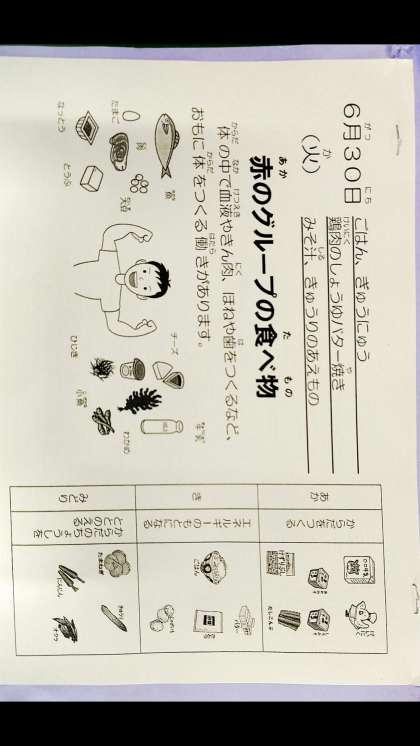 6月30日(火)
ごはん、ぎゅうにゅう
鶏肉のしょうゆバター焼き
みそ汁、きゅうりのあえもの
赤のグループの食べ物
体の中で血液やきん肉、ほねや歯をつくるなど、
おもに体をつくる働きがあります。
魚
肉
たまご
大豆
とうふ
なっとう
チーズ
牛乳
わかめ
小魚
ひじき
あか
き
みどり
からだをつくる
エネルギーのもとになる
からだのちょうしをととのえる
だしこんぶ
ごはん
バター
たまねぎ
にんじん
きゅうり